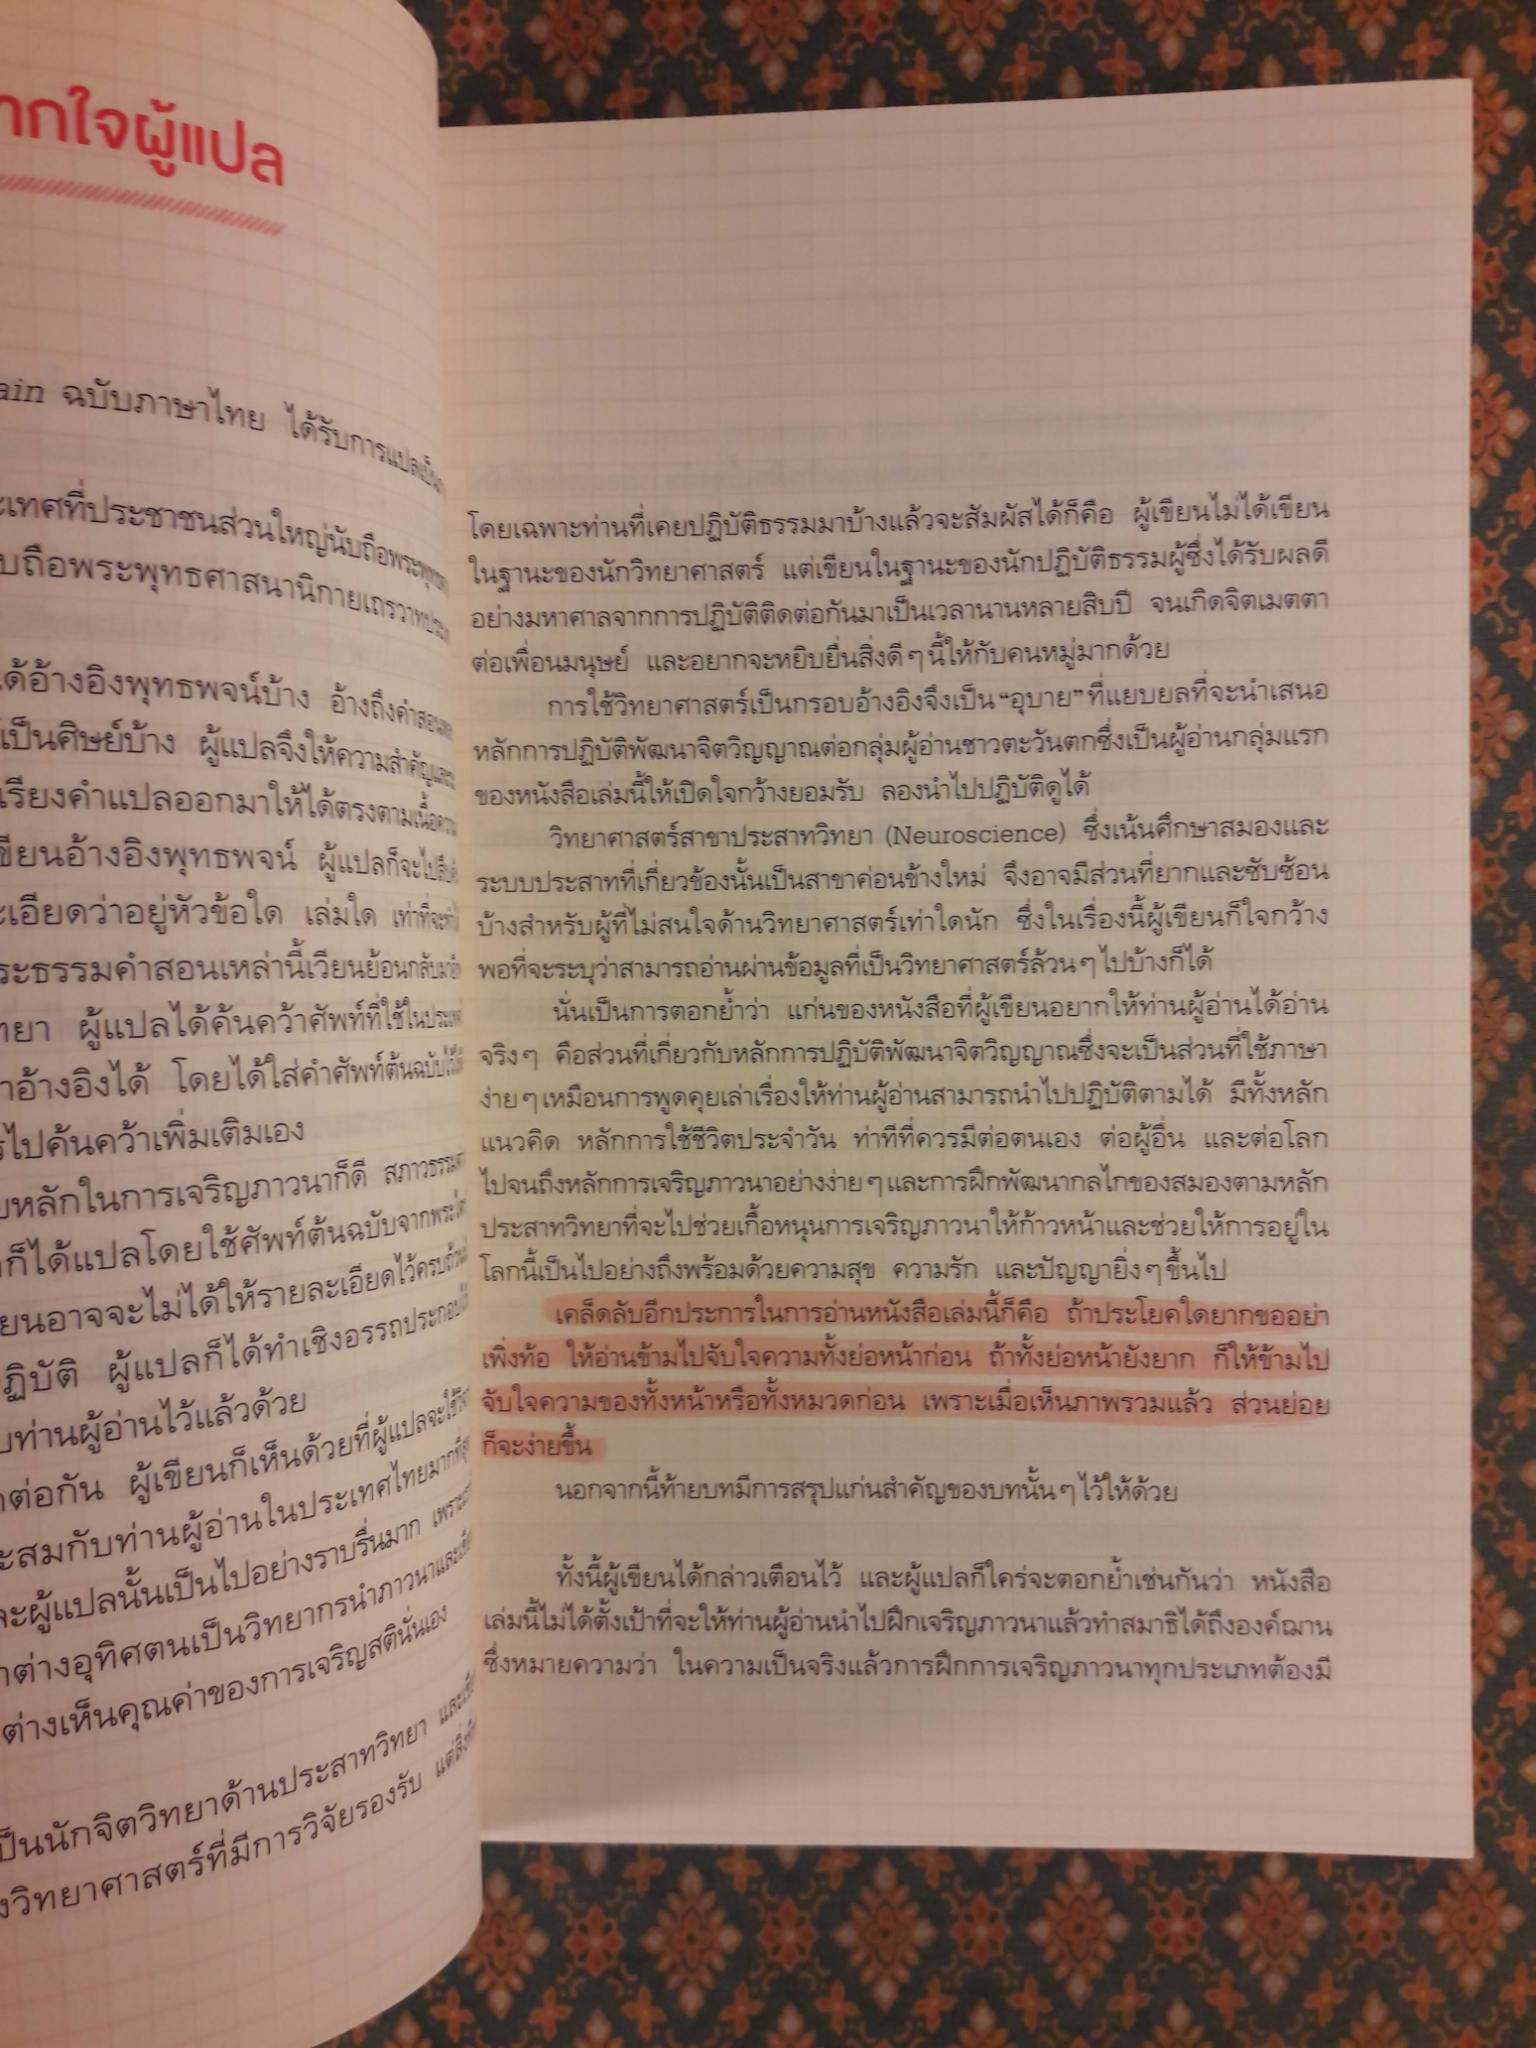 ากใจผู้แปล
ain ฉบับภาษาไทย ได้รับการแปลเป็น
ะเทศที่ประชาชนส่วนใหญ่นับถือพระพุทธ
บถือพระพุทธศาสนานิกายเถรวาท
ด้อ้างอิงพุทธพจน์บ้าง อ้างถึงคำสอน
เป็นศิษย์บ้าง ผู้แปลจึงให้ความสำคัญและ
เรียงคำแปลออกมาให้ได้ตรงตามเนื้อความ
ขียนอ้างอิงพุทธพจน์ ผู้แปลก็จะไปสืบค้น
ะเอียดว่าอยู่หัวข้อใด เล่มใด เท่าที่จะทำ
ระธรรมคำสอนเหล่านี้เวียนย้อนกลับมา
ทยา ผู้แปลได้ค้นคว้าศัพท์ที่ใช้ในประเทศ
าอ้างอิงได้ โดยได้ใส่คำศัพท์ต้นฉบับไว้ให้
รไปค้นคว้าเพิ่มเติมเอง
ยหลักในการเจริญภาวนาก็ดี สภาวธรรม
ก็ได้แปลโดยใช้ศัพท์ต้นฉบับจาก
ยนอาจจะไม่ได้ให้รายละเอียดไว้ครบถ้วน
ฏิบัติ ผู้แปลก็ได้ทำเชิงอรรถประกอบ
บท่านผู้อ่านไว้แล้วด้วย
ต่อกัน ผู้เขียนก็เห็นด้วยที่ผู้แปลจะใช้
ะสมกับท่านผู้อ่านในประเทศไทยมากที่สุด
ละผู้แปลนั้นเป็นไปอย่างราบรื่นมาก เพราะ
ต่างอุทิศตนเป็นวิทยากรนำภาวนาและ
ต่างเห็นคุณค่าของการเจริญสตินั่นเอง
ป็นนักจิตวิทยาด้านประสาทวิทยา และ
งวิทยาศาสตร์ที่มีการวิจัยรองรับ แต่สิ่งที่
โดยเฉพาะท่านที่เคยปฏิบัติธรรมมาบ้างแล้วจะสัมผัสได้ก็คือ ผู้เขียนไม่ได้เขียน
ในฐานะของนักวิทยาศาสตร์ แต่เขียนในฐานะของนักปฏิบัติธรรมผู้ซึ่งได้รับผลดี
อย่างมหาศาลจากการปฏิบัติติดต่อกันมาเป็นเวลานานหลายสิบปี จนเกิดจิตเมตตา
ต่อเพื่อนมนุษย์ และอยากจะหยิบยื่นสิ่งดีๆ นี้ให้กับคนหมู่มากด้วย
การใช้วิทยาศาสตร์เป็นกรอบอ้างอิงจึงเป็น “อุบาย” ที่แยบยลที่จะนำเสนอ
หลักการปฏิบัติพัฒนาจิตวิญญาณต่อกลุ่มผู้อ่านชาวตะวันตกซึ่งเป็นผู้อ่านกลุ่มแรก
ของหนังสือเล่มนี้ให้เปิดใจกว้างยอมรับ ลองนำไปปฏิบัติดูได้
วิทยาศาสตร์สาขาประสาทวิทยา (Neuroscience) ซึ่งเน้นศึกษาสมองและ
ระบบประสาทที่เกี่ยวข้องนั้นเป็นสาขาค่อนข้างใหม่ จึงอาจมีส่วนที่ยากและซับซ้อน
บ้างสำหรับผู้ที่ไม่สนใจด้านวิทยาศาสตร์เท่าใดนัก ซึ่งในเรื่องนี้ผู้เขียนก็ใจกว้าง
พอที่จะระบุว่าสามารถอ่านผ่านข้อมูลที่เป็นวิทยาศาสตร์ล้วนๆ ไปบ้างก็ได้
นั่นเป็นการตอกย้ำว่า แก่นของหนังสือที่ผู้เขียนอยากให้ท่านผู้อ่านได้อ่าน
จริงๆ คือส่วนที่เกี่ยวกับหลักการปฏิบัติพัฒนาจิตวิญญาณซึ่งจะเป็นส่วนที่ใช้ภาษา
ง่ายๆ เหมือนการพูดคุยเล่าเรื่องให้ท่านผู้อ่านสามารถนำไปปฏิบัติตามได้ มีทั้งหลัก
แนวคิด หลักการใช้ชีวิตประจำวัน ท่าทีที่ควรมีต่อตนเอง ต่อผู้อื่น และต่อโลก
ไปจนถึงหลักการเจริญภาวนาอย่างง่ายๆ และการฝึกพัฒนากลไกของสมองตามหลัก
ประสาทวิทยาที่จะไปช่วยเกื้อหนุนการเจริญภาวนาให้ก้าวหน้าและช่วยให้การอยู่ใน
โลกนี้เป็นไปอย่างถึงพร้อมด้วยความสุข ความรัก และปัญญายิ่งๆ ขึ้นไป
เคล็ดลับอีกประการในการอ่านหนังสือเล่มนี้ก็คือ ถ้าประโยคใดยากขออย่า
เพิ่งท้อ ให้อ่านข้ามไปจับใจความทั้งย่อหน้าก่อน ถ้าทั้งย่อหน้ายังยาก ก็ให้ข้ามไป
จับใจความของทั้งหน้าหรือทั้งหมวดก่อน เพราะเมื่อเห็นภาพรวมแล้ว ส่วนย่อย
ก็จะง่ายขึ้น
นอกจากนี้ท้ายบทมีการสรุปแก่นสำคัญของบทนั้นๆ ไว้ให้ด้วย
ทั้งนี้ผู้เขียนได้กล่าวเตือนไว้ และผู้แปลก็ใคร่จะตอกย้ำเช่นกันว่า หนังสือ
เล่มนี้ไม่ได้ตั้งเป้าที่จะให้ท่านผู้อ่านนำไปฝึกเจริญภาวนาแล้วทำสมาธิได้ถึงองค์ฌาน
ซึ่งหมายความว่า ในความเป็นจริงแล้วการฝึกการเจริญภาวนาทุกประเภทต้องมี